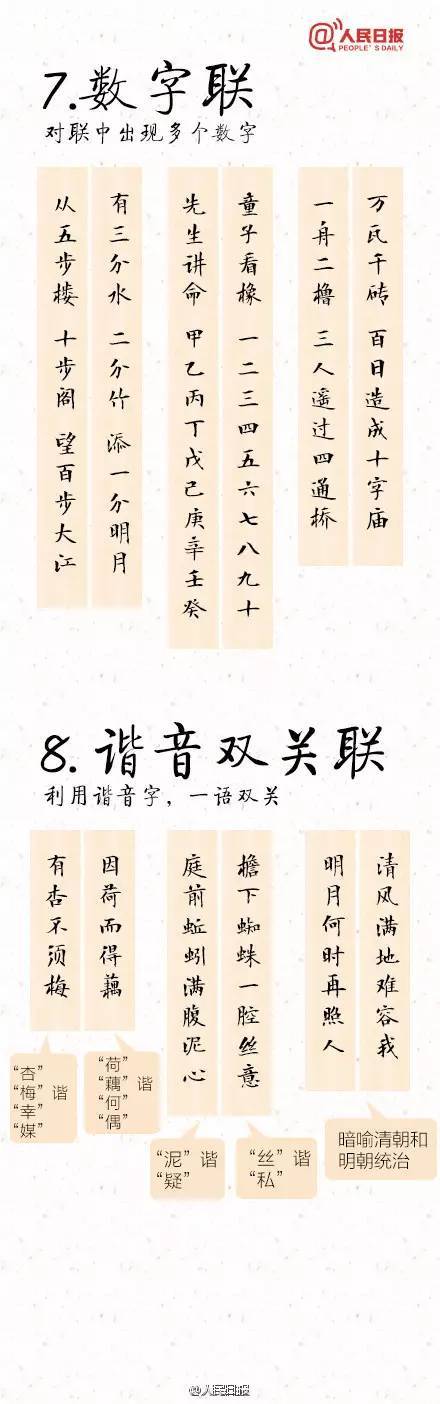 @人民日报
PEOPLE'S DAILY
7.数字联
对联中出现多个数字
万瓦千砖 百日造成十字庙
一舟二橹 三人遥过四通桥
童子看橡 一二三四五六七八九十
先生讲命 甲乙丙丁戊己庚辛壬癸
有三分水 二分竹 添一分明月
从五步楼 十步阁 望百步大江
8.谐音双关联
利用谐音字,一语双关
清风满地难容我
明月何时再照人
檐下蜘蛛一腔丝意
庭前蚯蚓满腹泥心
因荷而得藕
有杏不须梅
“杏”
“梅” 谐
“幸”
“媒”
“荷”
“藕” 谐
“何”
“偶”
“泥” 谐
“疑”
“丝” 谐
“私”
暗喻清朝和
明朝统治
@人民日报